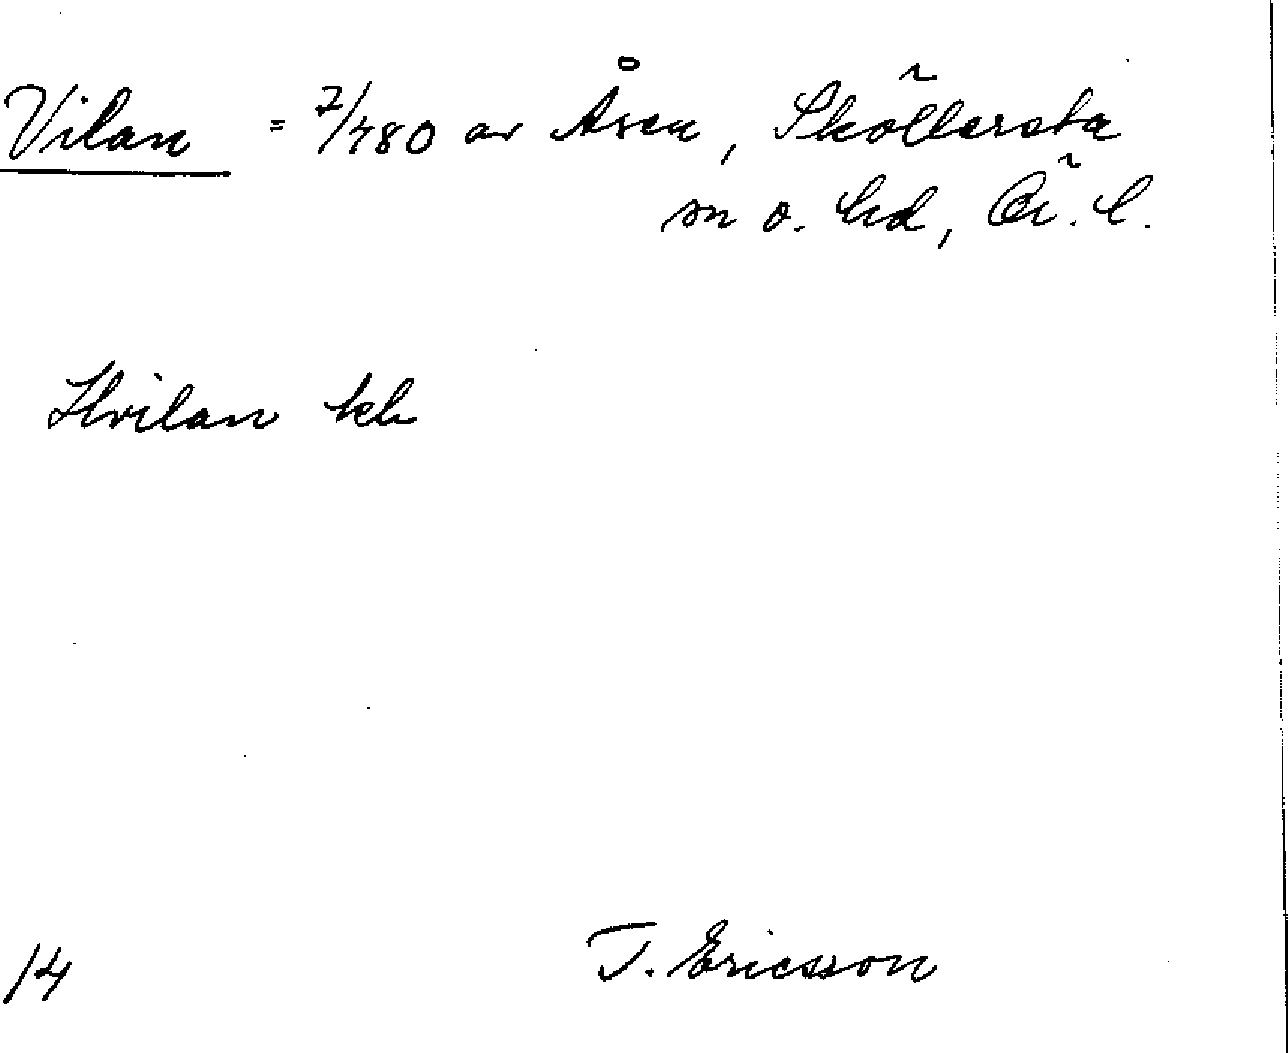 Vilan = 7/480 av Åsen, Sköllersta
sn o. hd, Ör. l.
Hvilan kb
/4 T. Ericsson